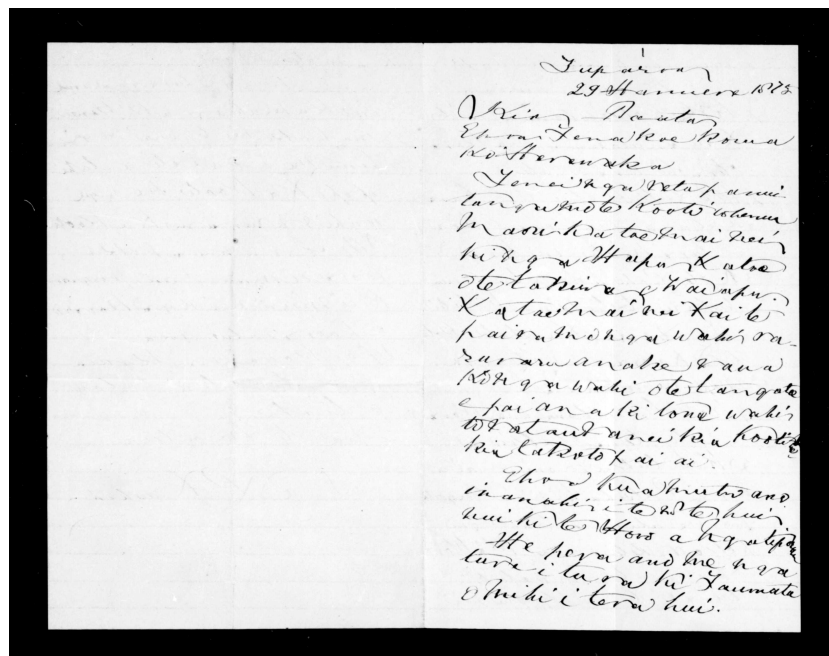 Tuparoa
29 Hanuere 1875
Kia Ro ata
Ehoa Tena koe koua
ko Henare
Tenei nga reta panui
tanga mo te Kooti whenua
Maori ka tae mai nei
ki nga Hapu Katoa
o te takiwa o Waiapu.
Ka tae mai nei Kai te
pai ra mo nga wahi ra-
ruraru anake raua
ko nga wahi o te tangata
e pai ana ki tona wahi
kia Kooti
kia takoto pai ai.
Ehoa Kua mutu ano
inanahi i te te hui
nui ki te Horo a Ngatiporou
He pera ano me nga
ture i tu ra ki Taumata
o mihi i tera hui.